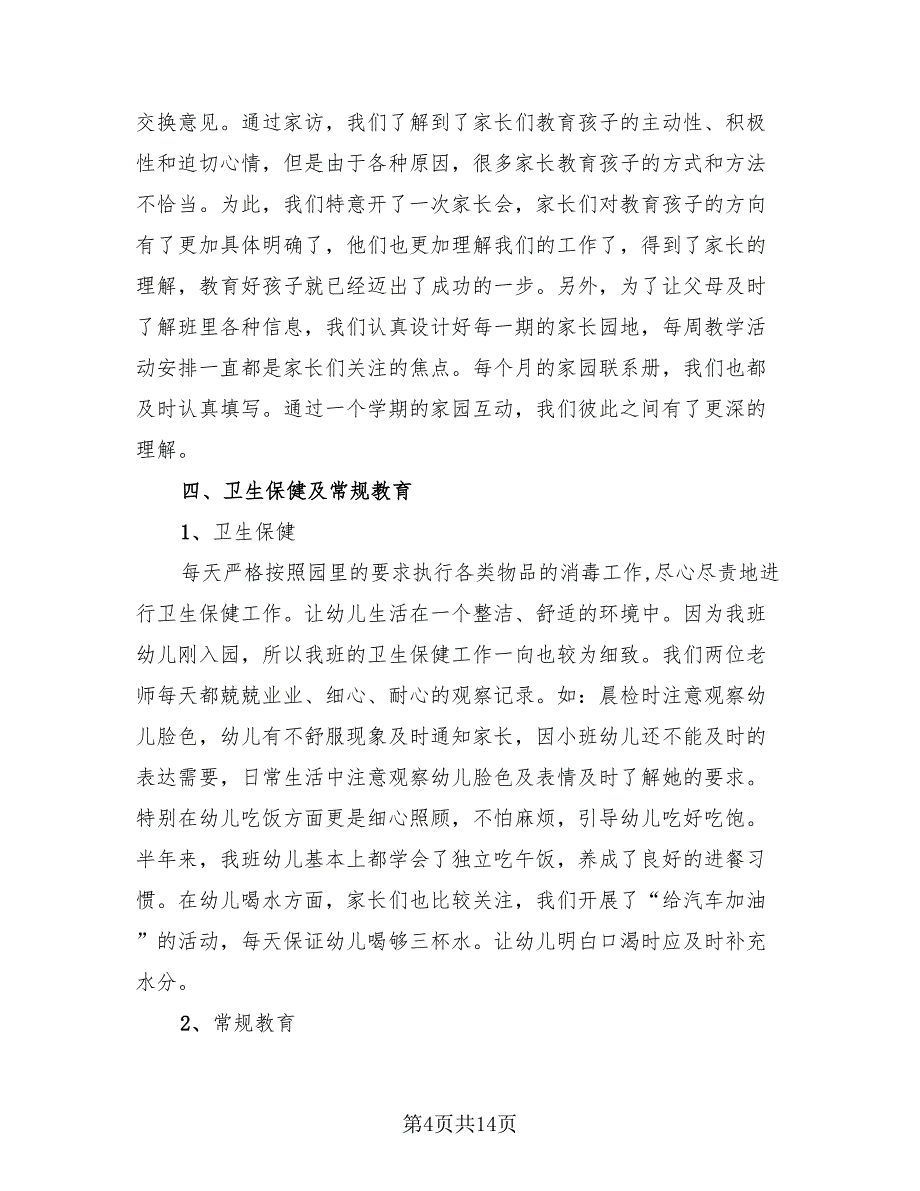 交换意见。通过家访，我们了解到了家长们教育孩子的主动性、积极
性和迫切心情，但是由于各种原因，很多家长教育孩子的方式和方法
不恰当。为此，我们特意开了一次家长会，家长们对教育孩子的方向
有了更加具体明确了，他们也更加理解我们的工作了，得到了家长的
理解，教育好孩子就已经迈出了成功的一步。另外，为了让父母及时
了解班里各种信息，我们认真设计好每一期的家长园地，每周教学活
动安排一直都是家长们关注的焦点。每个月的家园联系册，我们也都
及时认真填写。通过一个学期的家园互动，我们彼此之间有了更深的
理解。
四、卫生保健及常规教育
1、卫生保健
每天严格按照园里的要求执行各类物品的消毒工作,尽心尽责地进
行卫生保健工作。让幼儿生活在一个整洁、舒适的环境中。因为我班
幼儿刚入园，所以我班的卫生保健工作一向也较为细致。我们两位老
师每天都兢兢业业、细心、耐心的观察记录。如：晨检时注意观察幼
儿脸色，幼儿有不舒服现象及时通知家长，因小班幼儿还不能及时的
表达需要，日常生活中注意观察幼儿脸色及表情及时了解她的要求。
特别在幼儿吃饭方面更是细心照顾，不怕麻烦，引导幼儿吃好吃饱。
半年来，我班幼儿基本上都学会了独立吃午饭，养成了良好的进餐习
惯。在幼儿喝水方面，家长们也比较关注，我们开展了“给汽车加油
”的活动，每天保证幼儿喝够三杯水。让幼儿明白口渴时应及时补充
水分。
2、常规教育
第4页共14页